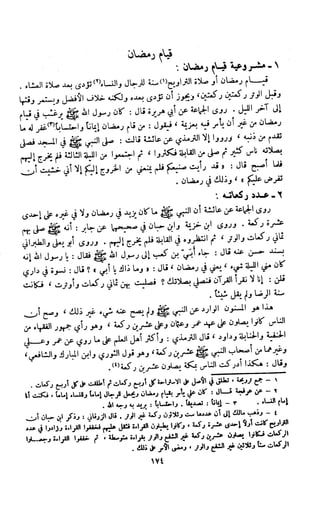 قيام رمضان
١ - مشروعية قيام رمضان :
قيام رمضان أو صلاة التراويح (١) سنة للرجال والنساء (٢) تؤدى بعد صلاة العشاء .
وقبل الوتر ركعتين ركعتين ، ويجوز أن تؤدى بعده ولكنه خلاف الأفضل ويستمر وقتها
إلى آخر الليل . روى الجماعة عن أبي هريرة قال : كان رسول الله ﷺ يرغب في قيام
رمضان من غير أن يأمر فيه بعزيمة ، فيقول : من قام رمضان إيمانا واحتسابا (٣) غفر له ما
تقدم من ذنبه ، ورووا إلا الترمذي عن عائشة قالت : صلى النبي ﷺ في المسجد فصلى
بصلاته ناس كثير ثم صلى من القابلة فكثروا ، ثم اجتمعوا من الليلة الثالثة فلم يخرج إليهم
فلما أصبح قال : « قد رأيت صنيعكم فلم يمنعني من الخروج إليكم إلا أني خشيت أن
تفرض عليكم » ، وذلك في رمضان .
٢ - عدد ركعاته :
روى الجماعة عن عائشة أن النبي ﷺ ما كان يزيد في رمضان ولا في غيره على إحدى
عشرة ركعة . وروى ابن خزيمة وابن حبان في صحيحهما عن جابر : أنه ﷺ صلى بهم
ثماني ركعات والوتر ، ثم انتظروه في القابلة فلم يخرج إليهم . وروى أبو يعلى والطبراني
بسند حسن عنه قال : جاء أبي بن كعب إلى رسول الله ﷺ فقال : يا رسول الله إنه
كان مني الليلة شيء ، يعني في رمضان ، قال : « وما ذاك يا أبي » ؟ قال : نسوة في داري
قلن : إنا لا نقرأ القرآن فنصلي بصلاتك ؟ فصليت بهن ثماني ركعات وأوترت ، فكانت
سنة الرضا ولم يقل شيئا .
هذا هو المسنون الوارد عن النبي ﷺ ولم يصح عنه شيء غير ذلك ، وصح أن
الناس كانوا يصلون على عهد عمر وعثمان وعلي عشرين ركعة ، وهو رأي جمهور الفقهاء من
الحنفية والحنابلة وداود ، قال الترمذي : وأكثر أهل العلم على ما روي عن عمر وعلي
وغيرهما من أصحاب النبي ﷺ عشرين ركعة ، وهو قول الثوري وابن المبارك والشافعي ،
وقال : هكذا أدركت الناس بمكة يصلون عشرين ركعة (٤) .
١ - جمع ترويحة ، تطلق في الأصل على الاستراحة كل أربع ركعات ثم أطلقت على كل أربع ركعات .
٢ - عن عرفجة قال : كان علي يأمر بقيام رمضان ويجعل للرجال إماما وللنساء إماما ، فكنت أنا
إمام النساء . ٣ - إيمانا : تصديقا . واحتسابا : يريد به وجه الله .
٤ - وذهب مالك إلى أن عددها ست وثلاثون ركعة غير الوتر . قال الزرقاني : وذكر ابن حبان أن
التراويح كانت أولا إحدى عشرة ركعة ، وكانوا يطيلون القراءة فثقل عليهم فخففوا القراءة وزادوا في عدد
الركعات فكانوا يصلون عشرين ركعة غير الشفع والوتر بقراءة متوسطة ، ثم خففوا القراءة وجعلوا
الركعات ستا وثلاثين غير الشفع والوتر ، ومضى الأمر على ذلك .
١٧٤